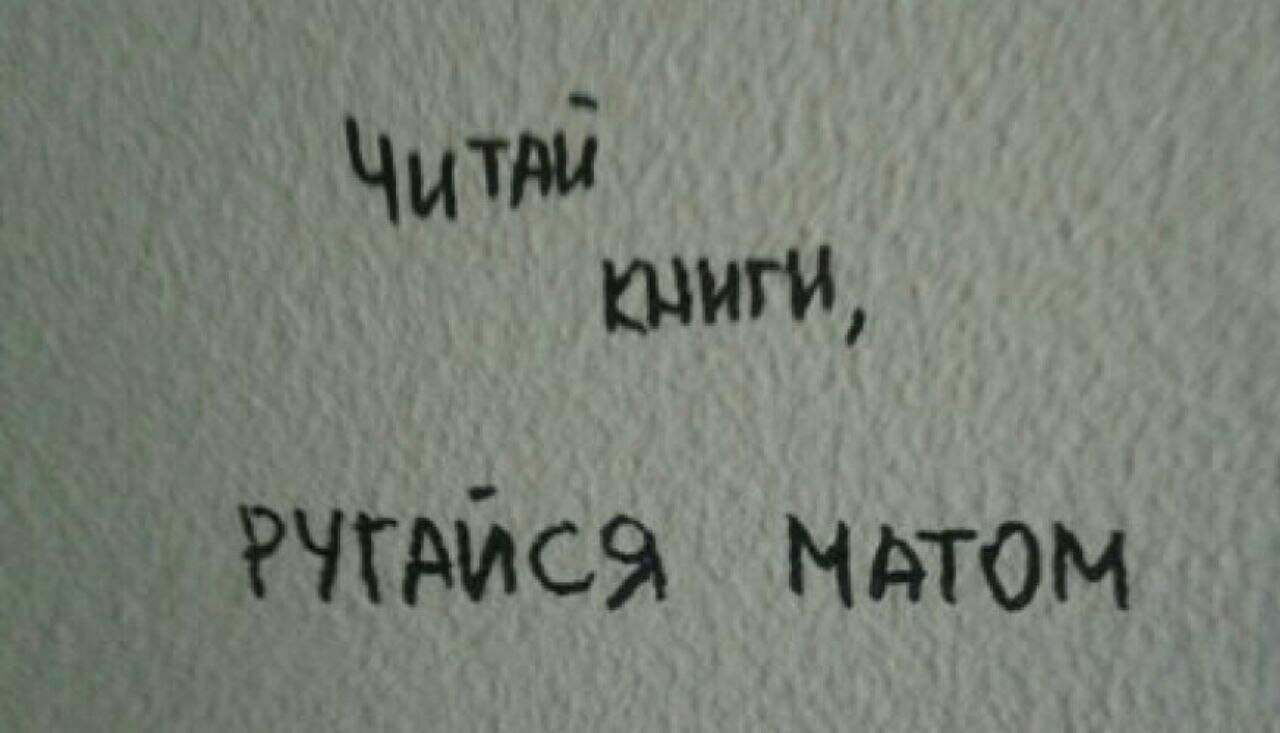 Читай
книги,
РУГАЙСЯ МАТОМ